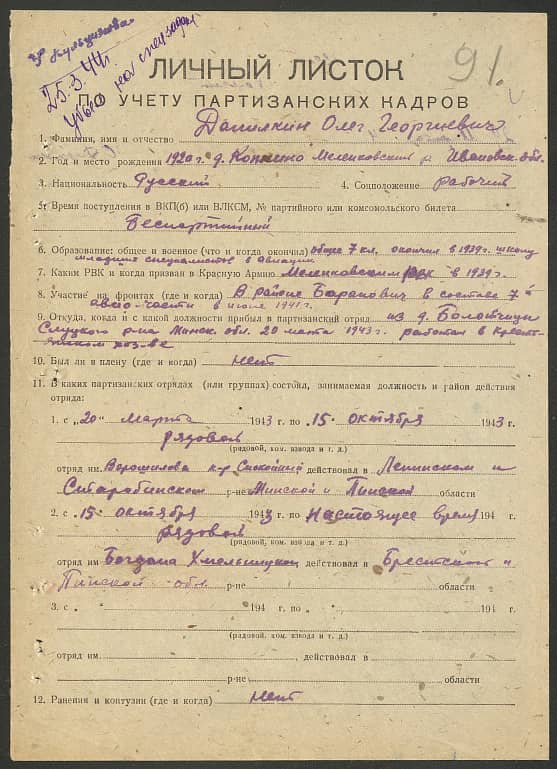 25.3.44г.
91.
ЛИЧНЫЙ ЛИСТОК
ПО УЧЕТУ ПАРТИЗАНСКИХ КАДРОВ
1. Фамилия, имя и отчество Данилкин Олег Георгиевич
2. Год и место рождения 1920 г. д. Меленковский р. Ивановск. обл.
3. Национальность Русский 4. Соцположение рабочий
5. Время поступления в ВКП(б) или ВЛКСМ, № партийного или комсомольского билета
Беспартийный
6. Образование: общее и военное (что и когда окончил) общее 7 кл. окончил в 1939г. школу
младших специалистов в авиации
7. Каким РВК и когда призван в Красную Армию Меленковским рвк в 1939г.
8. Участие на фронтах (где и когда) В районе Баранович в составе 7й
авиачасти в июне 1941г.
9. Откуда, когда и с какой должности прибыл в партизанский отряд из д. Болотчицы
Слуцкого р-на Минск. обл. 20 марта 1943г. работал в крест-
янском хоз-ве
10. Был ли в плену (где и когда) нет
11. В каких партизанских отрядах (или группах) состоял, занимаемая должность и район действия
отряда:
1. с „20" марта 1943 г. по „15" октября 1943 г.
рядовой
(рядовой, ком. взвода и т. д.)
отряд им. Ворошилова к-р действовал в Ленинском и
Старобинском р-не Минской и Пинской области
2. с „15" октября 1943 г. по настоящее время 194 г.
рядовой
(рядовой, ком. взвода и т. д.)
отряд им. Богдана Хмельницкого действовал в Брестской и
Пинской обл. р-не области
3. с 194 г. по 194 г.
(рядовой, ком. взвода и т. д.)
отряд им. , действовал в
р-не области
12. Ранения и контузии (где и когда) нет